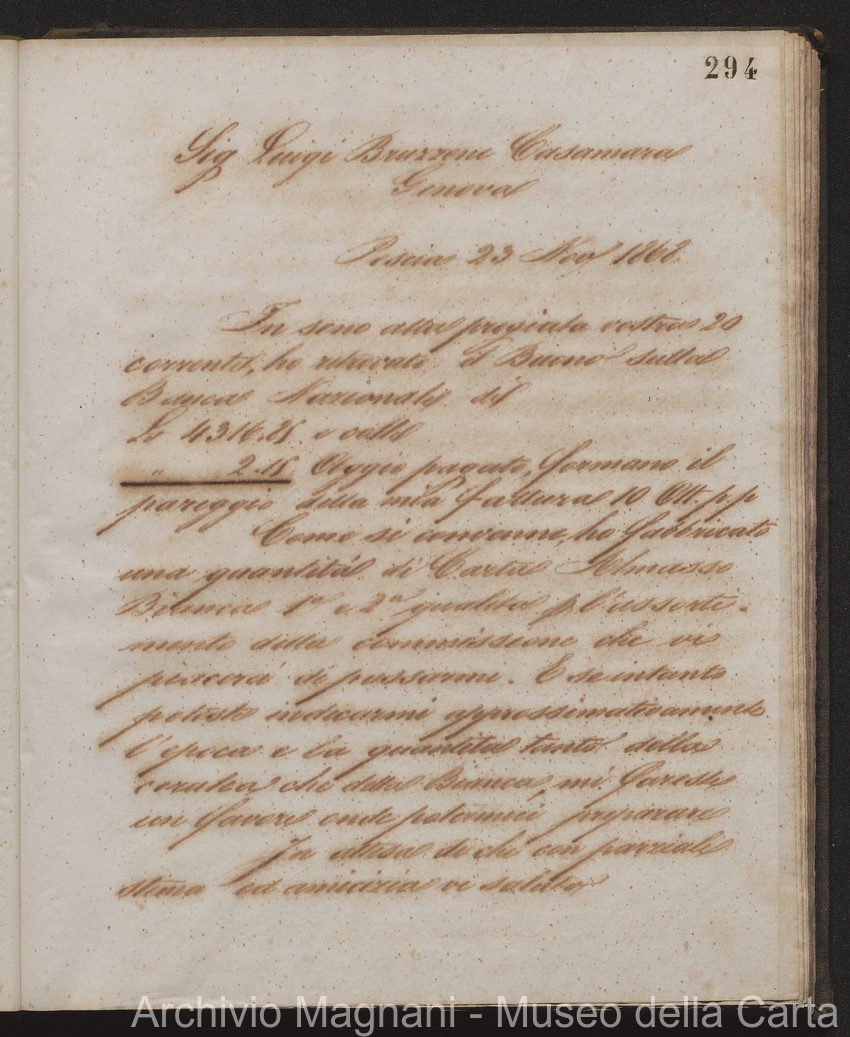 294
Sig Luigi Bruzzone Casamara
Genova
Pescia 23 Nov 1868
In seno alla pregiata vostra 20
corrente, ho ritrovato il Buono sulla
Banca Nazionale di
L. 4316.81 e colle
" 2.15 Aggio pagato, formano il
pareggio della mia fattura 10 Ott. p.p
Come si convenne, ho fabbricato
una quantità di Carta Almasso
Bianca 1a e 2a qualità p l'assorti-
mento della commissione che vi
piacerà di passarmi. E se intanto
poteste indicarmi approssimativamente
l'epoca e la quantità tanto della
cerulea che della Bianca, mi fareste
un favore onde potermici preparare
In attesa di che con parziale
stima ed amicizia vi saluto
Archivio Magnani - Museo della Carta